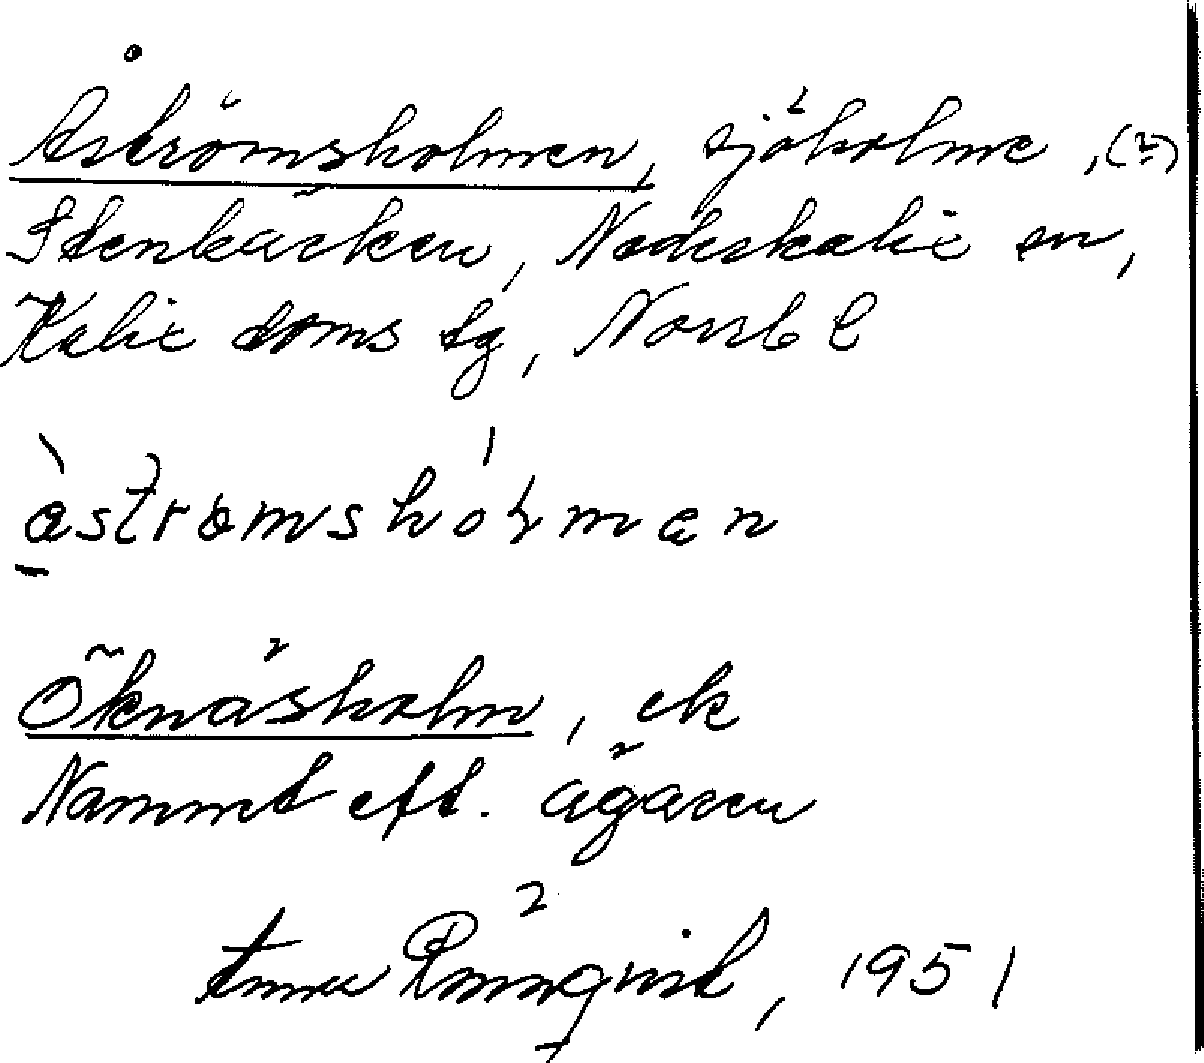 Åströmsholmen, sjöholme,
Stenbäcken, Nederkalix sn,
Kalix doms tg, Norrb l
Öknäsholm, ek
Namnet eft. ägaren
Anna Rönnqvist, 1951